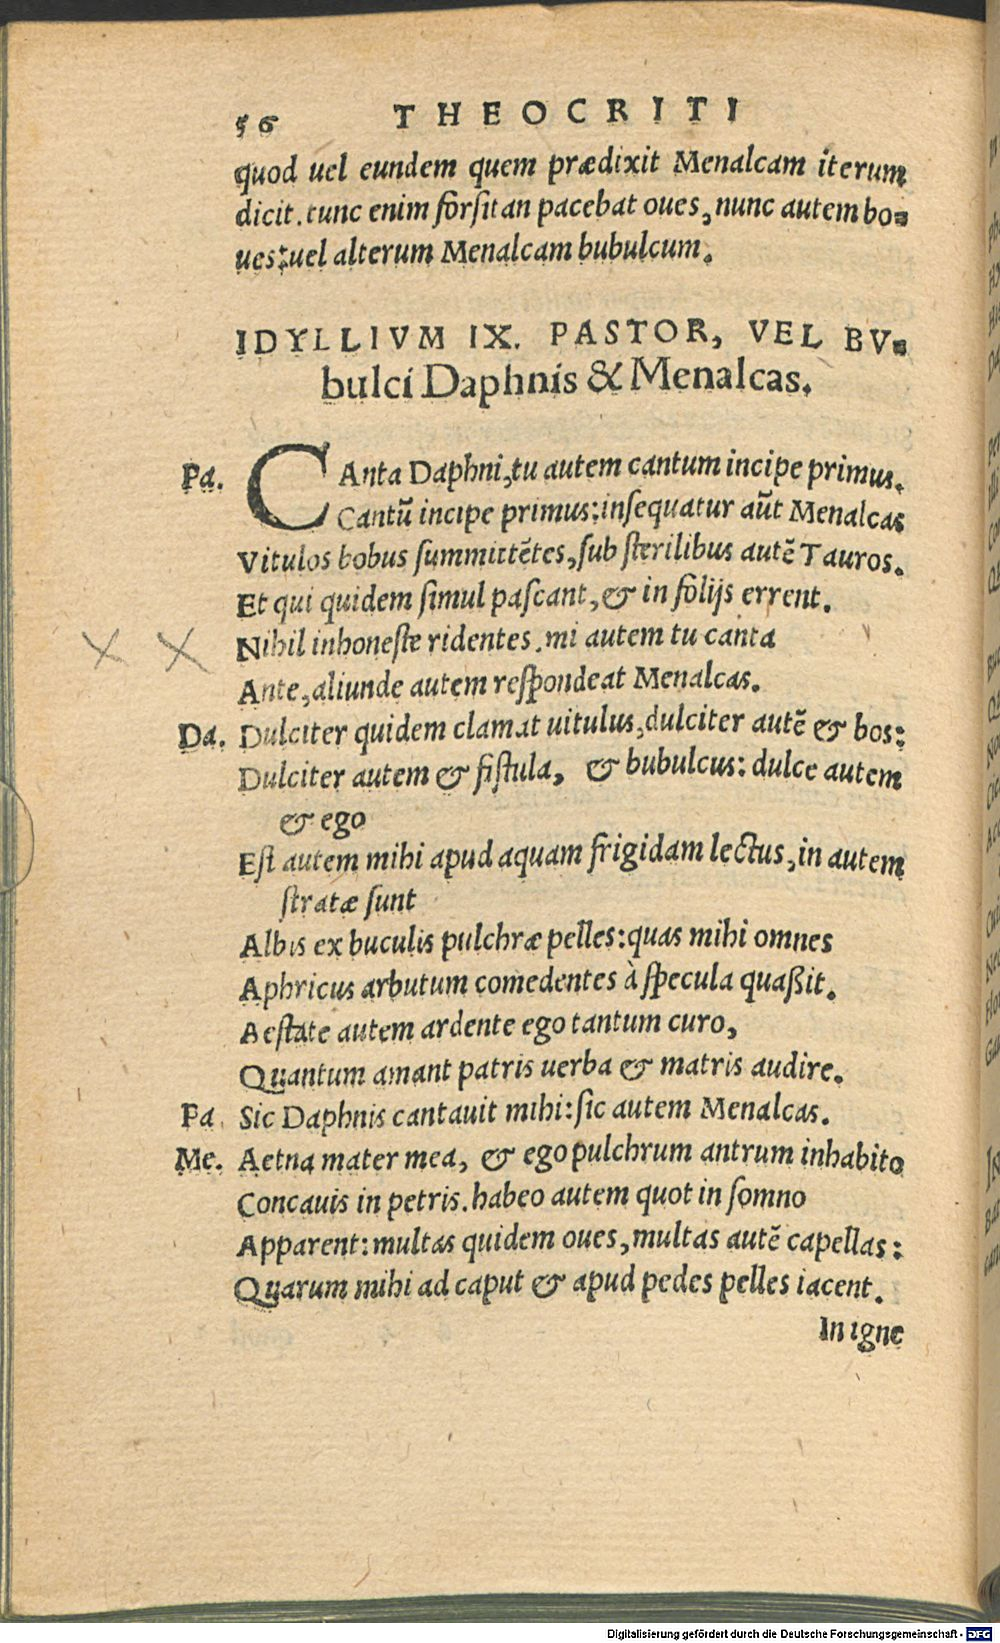 56 THEOCRITI
quod uel eundem quem prædixit Menalcam iterum
dicit. tunc enim forsitan pacebat oues, nunc autem bo-
ues: uel alterum Menalcam bubulcum.
IDYLLIVM IX. PASTOR, VEL BV-
bulci Daphnis & Menalcas.
Pa. CAnta Daphni, tu autem cantum incipe primus.
Cantū incipe primus: insequatur aūt Menalcas
Vitulos bobus summittētes, sub sterilibus autē Tauros.
Et qui quidem simul pascant, & in folijs errent.
Nihil inhoneste ridentes. mi autem tu canta
Ante, aliunde autem respondeat Menalcas.
Da. Dulciter quidem clamat uitulus, dulciter autē & bos:
Dulciter autem & fistula, & bubulcus: dulce autem
& ego
Est autem mihi apud aquam frigidam lectus, in autem
stratæ sunt
Albis ex buculis pulchræ pelles: quas mihi omnes
Aphricus arbutum comedentes à specula quaßit.
Aestate autem ardente ego tantum curo,
Quantum amant patris uerba & matris audire.
Pa. Sic Daphnis cantauit mihi: sic autem Menalcas.
Me. Aetna mater mea, & ego pulchrum antrum inhabito
Concauis in petris. habeo autem quot in somno
Apparent: multas quidem oues, multas autē capellas:
Quarum mihi ad caput & apud pedes pelles iacent.
In igne
Digitalisierung gefördert durch die Deutsche Forschungsgemeinschaft - DFG